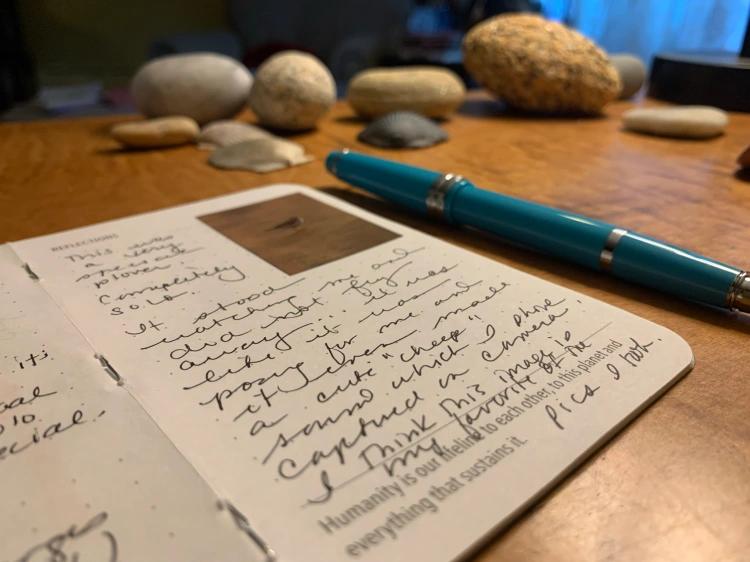 it's
solo
special.
REFLECTIONS
This was
a very
special
plover.
Completely
solo.
It stood
watching me and
did not fly
away... It was
like it was
posing for me and
it even made
a cute "cheep"
sound which I
captured on camera.
I think this image is
my favorite of the
pics I took.
Humanity is our lifeline to each other, to this planet and
everything that sustains it.